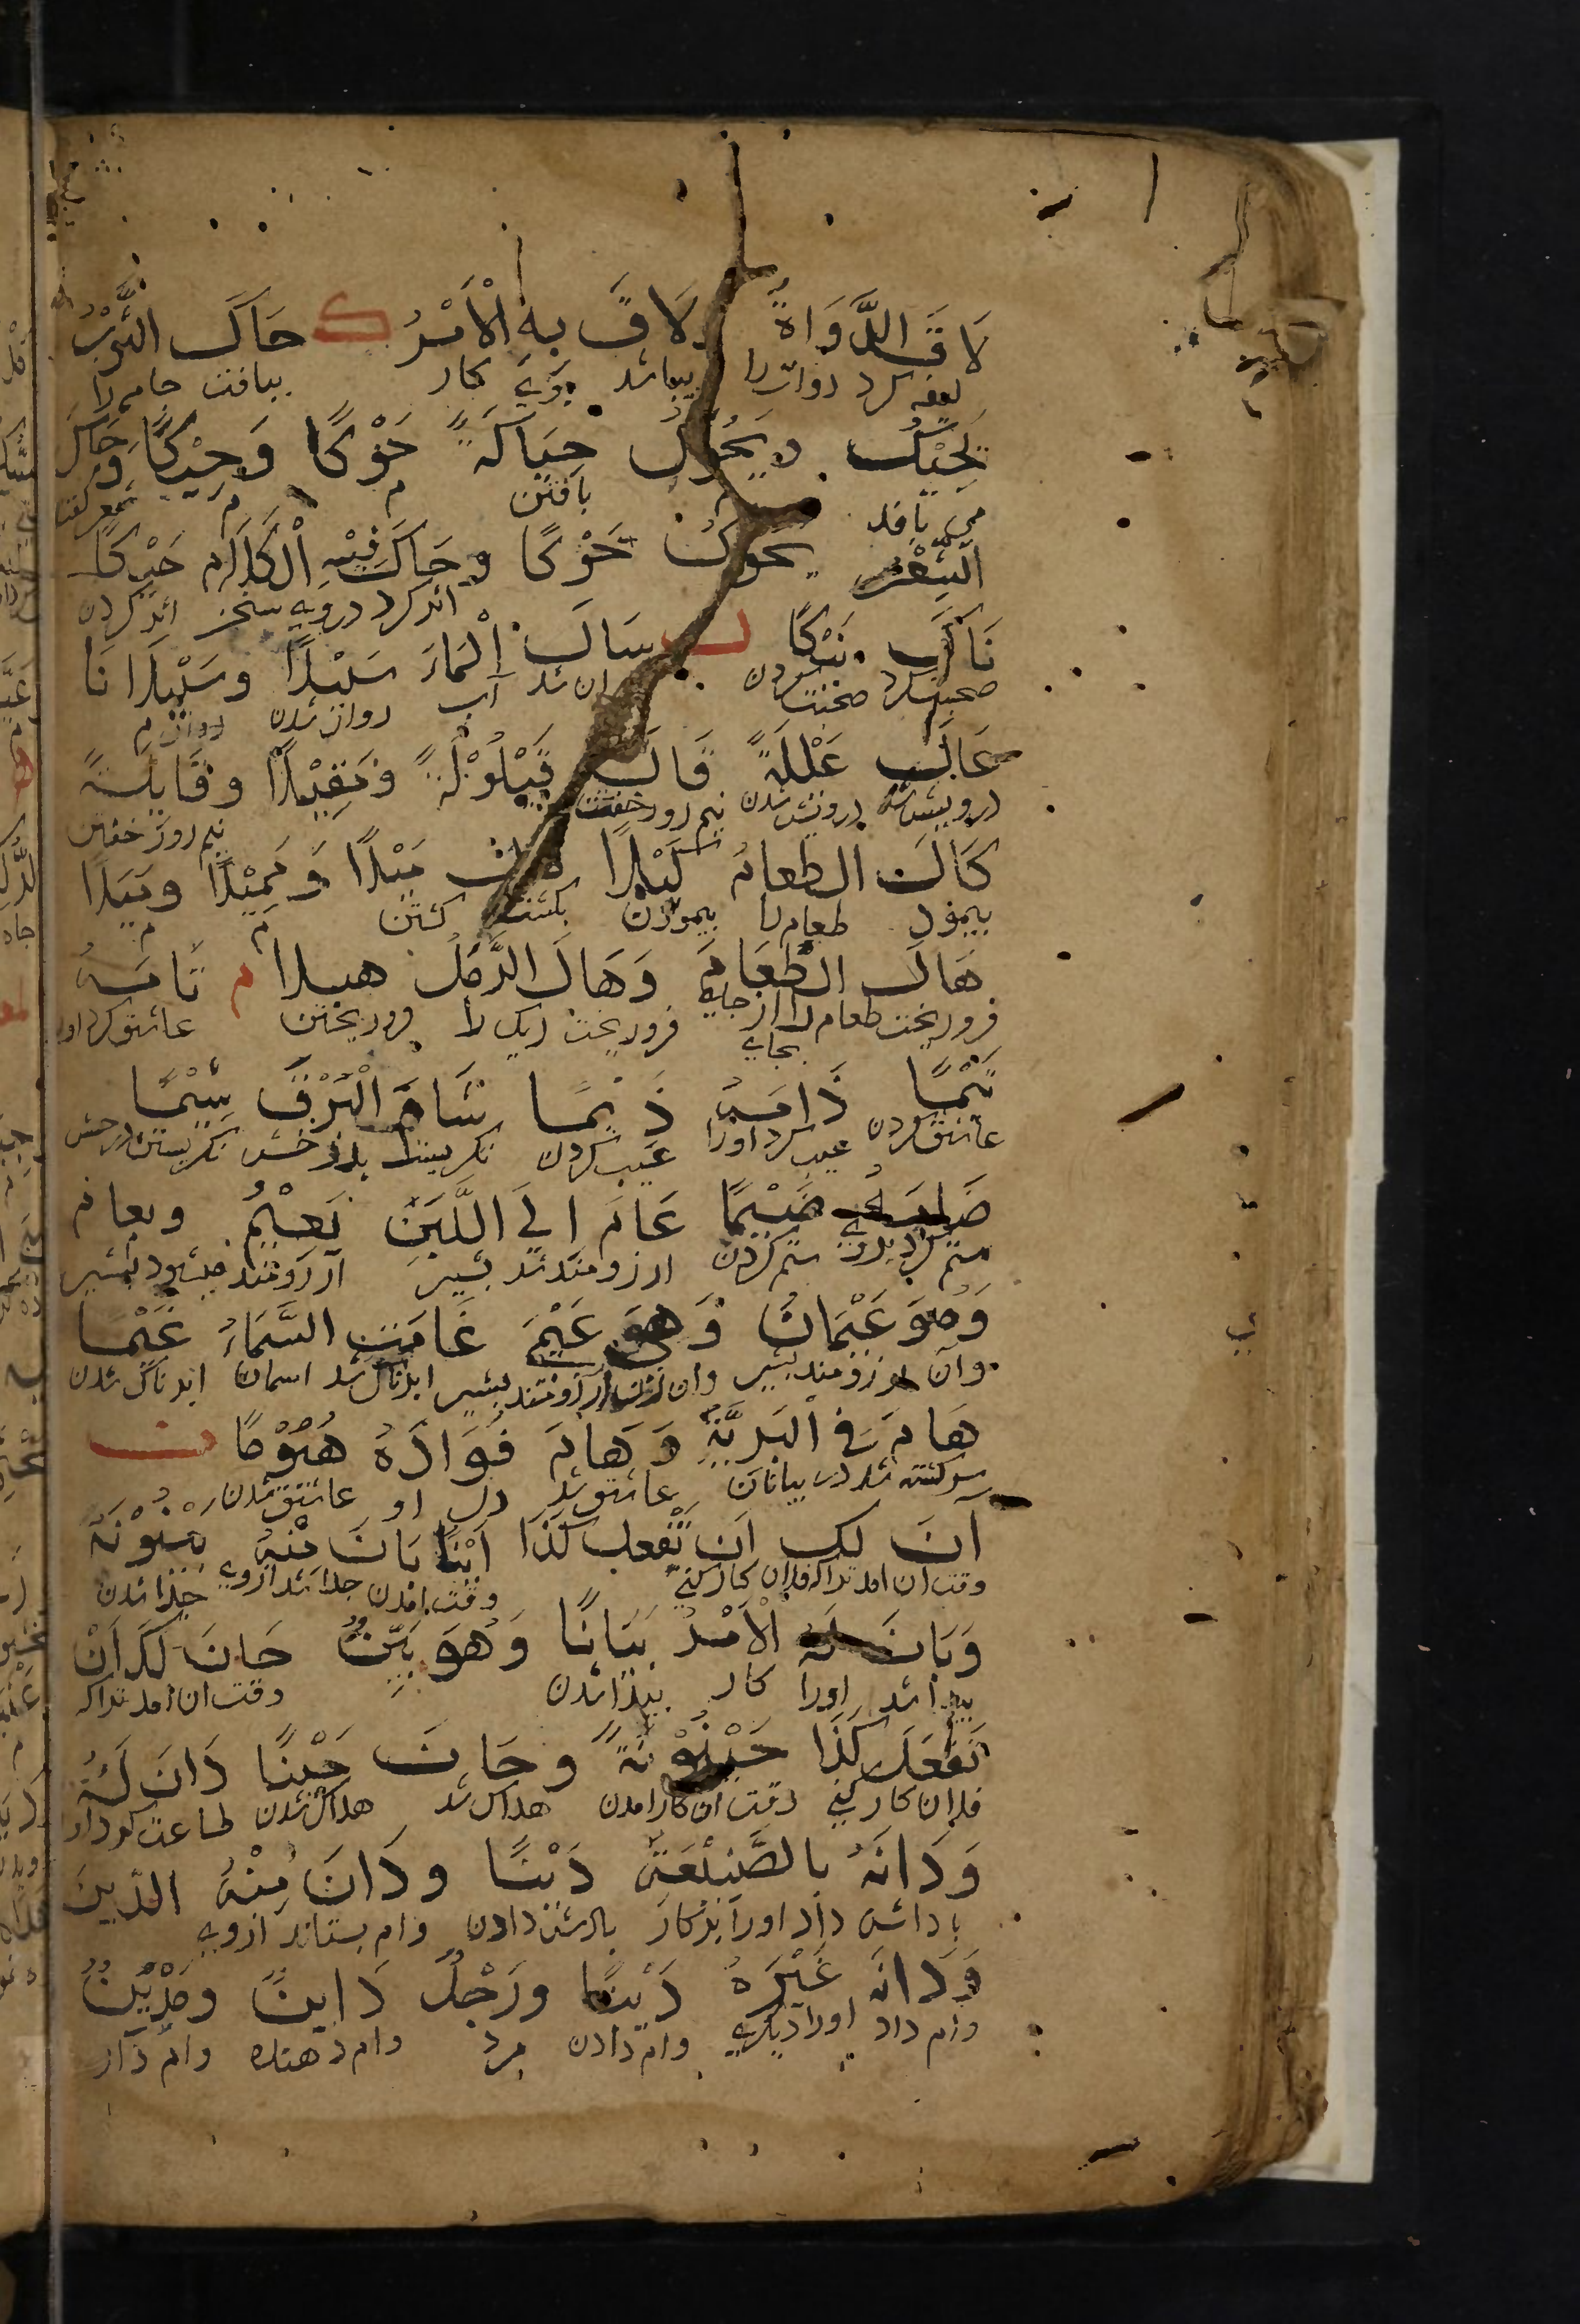 لَاقَ الدَّوَاةَ وَلَاقَ بِهِ الْأَمْرُ ك حَاكَ الثَّوْبَ
ليقه كرد دوات را بوى كار ببافت جامه را
يَحِيْكُ وَيَحُوْكُ حِيَاكَةً حَوْكًا وَحِيْكًا وَحَاكَ
مى بافد م بافتن م م شعر گفت
الشِّعْرَ يَحُوْكُ حَوْكًا وَحَاكَ فِيْهِ الْكَلَامُ حَيْكًا
اثر كرد در وى سخن اثر كردن
نَاكَ نَيْكًا ل سَالَ الْمَاءُ سَيْلًا وَسَيْلَانًا
صحبت كرد صحبت كردن روان شد آب روان شدن روان م
عَالَ عَيْلَةً قَالَ قَيْلُوْلَةً وَمَقِيْلًا وَقَايِلَةً
درويش شد درويش شدن نيم روز خفت نيم روز خفتن
كَالَ الطَّعَامَ كَيْلًا مَالَ مَيْلًا وَمَمِيْلًا وَمَيَلًا
بپيمود طعام را پيمودن بگشت گشتن م م
هَالَ الطَّعَامَ وَهَالَ الرَّمْلَ هيلا م تَامَهُ
فرو ريخت طعام را از جايى بجاى فرو ريخت ريگ را فرو ريختن عاشق كرد اورا
تَيْمًا ذَامَهُ ذَيْمًا شَامَ الْبَرْقَ شَيْمًا
عاشق كردن عيب كرد اورا عيب كردن نگريست بدرخش نگريستن درخش
ضَامَهُ ضَيْمًا عَامَ اِلَى اللَّبَنِ يَعِيْمُ وَيعام
ستم كرد برو ستم كردن ارزومند شد بشير آرزومند ميشود بشير
وَهُوَ عَيْمَانُ وَهِيَ عَيْمَى غَامَتِ السَّمَاءُ غَيْمًا
وآن ارزومند بشير وان زن ارزومند بشير ابرناك شد اسمان ابرناك شدن
هَامَ فِي الْبَرِيَّةِ وَهَامَ فُوَادُهُ هُيُوْمًا ن
سرگشته شد در بيابان عاشق شد دل او عاشق شدن
آنَ لك اَنْ تَفْعل كَذَا اَيْنًا بَانَ مِنْهُ بَيْنُوْنَةً
وقت ان امد تراكه فلان كار كنى وقت امدن جدا شد ازوى جدا شدن
وَبَانَ لَهُ الْاَمْرُ بَيَانًا وَهُوَ بَيِّنٌ حَانَ لَكَ اَنْ
پيدا شد اورا كار پيدا شدن وقت ان امد تراكه
تَفْعَلَ كَذَا حَيْنُوْنَةً وَحَانَ حَيْنًا دَانَ لَهُ
فلان كار كنى وقت ان كار امدن هلاك شد هلاك شدن طاعت كرد اورا
وَدَانَهُ بِالصَّنِيْعَةِ دَيْنًا وَدَانَ مِنْهُ الدَّيْنَ
پاداش داد اورا بدكار پاداش دادن وام بستاند ازوى
وَدَانَ غَيْرَهُ دَيْنًا وَرَجُلٌ دَايِنٌ وَمَدْيُوْنٌ
وام داد اورا ديگرى وام دادن مرد وام دهنده وام دار